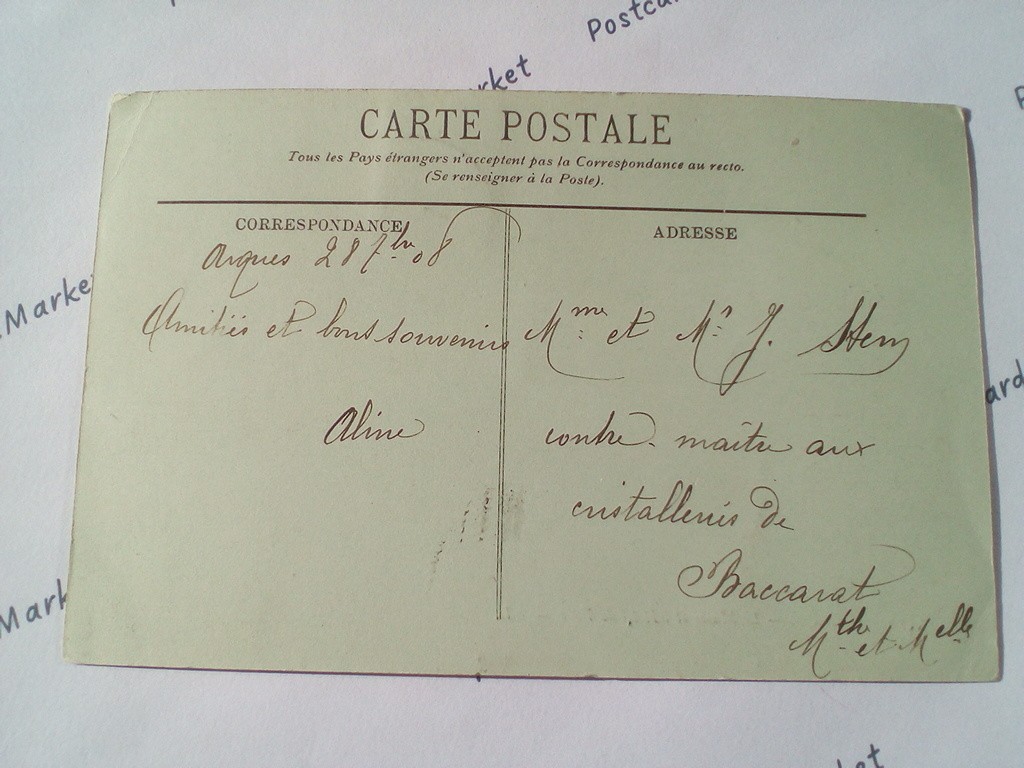 Postca
rket
CARTE POSTALE
Tous les Pays étrangers n'acceptent pas la Correspondance au recto.
(Se renseigner à la Poste).
CORRESPONDANCE
Arques 28 7bre 08
Amitiés et bons souvenirs
Aline
ADRESSE
Mme et Mr J.
contre-maître aux
cristalleries de
Baccarat
Mthe et Melle
.Marke
ard
Mark
et